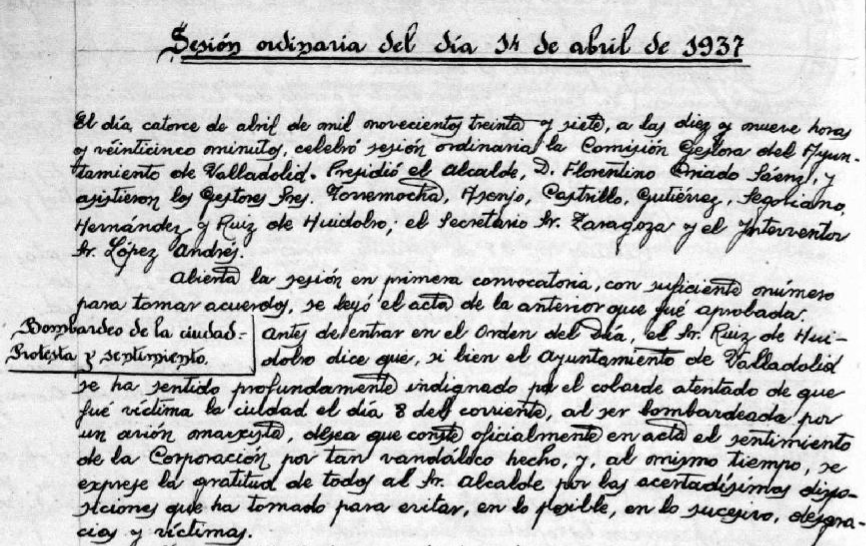 Sesión ordinaria del día 14 de abril de 1937
El día catorce de abril de mil novecientos treinta y siete, a las diez y nueve horas
y veinticinco minutos, celebró sesión ordinaria la Comisión Gestora del Ayun-
tamiento de Valladolid. Presidió el Alcalde, D. Florentino Criado Sáenz, y
asistieron los Gestores Sres. Torremocha, Asenjo, Castrillo, Gutiérrez, Segoviano,
Hernández y Ruiz de Huidobro; el Secretario Sr. Zaragoza y el Interventor
Sr. López Andrés.
Abierta la sesión en primera convocatoria, con suficiente número
para tomar acuerdos, se leyó el acta de la anterior que fué aprobada.
Bombardeo de la ciudad.-
Protesta y sentimiento.
Antes de entrar en el Orden del Día, el Sr. Ruiz de Hui-
dobro dice que, si bien el Ayuntamiento de Valladolid
se ha sentido profundamente indignado por el cobarde atentado de que
fué víctima la ciudad el día 8 del corriente, al ser bombardeada por
un avión marxista, desea que conste oficialmente en acta el sentimiento
de la Corporación por tan vandálico hecho, y, al mismo tiempo, se
exprese la gratitud de todos al Sr. Alcalde por las acertadísimas dispo-
siciones que ha tomado para evitar, en lo posible, en lo sucesivo, desgra-
cias y víctimas.